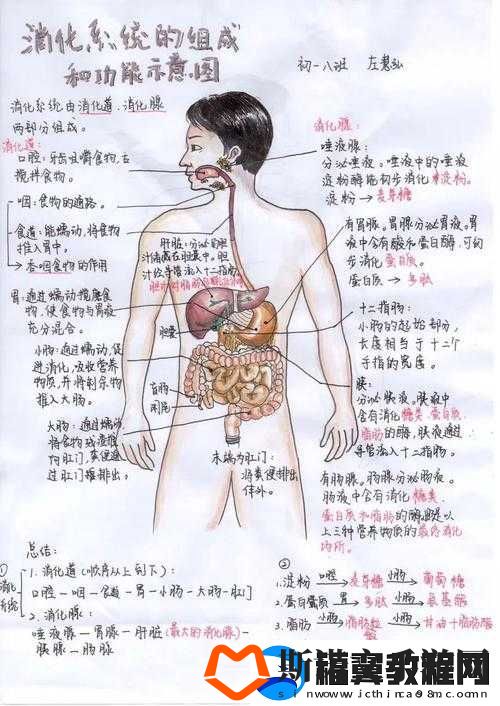 消化系统的组成
和功能示意图
初一八班
消化系统由消化道、消化腺
两部分组成。
消化道:
口腔:牙齿咀嚼食物,舌
搅拌食物。
咽:食物的通路。
食道:能蠕动,将食物
推入胃中。
吞咽食物的作用
胃:通过蠕动搅磨食
物,使食物与胃液
充分混合。
小肠:通过蠕动,促
进消化,吸收营养
物质,并将剩余物
推入大肠。
大肠:通过蠕动
将食物残渣推
向肛门,粪便通
过肛门排出。
肝脏:分泌的胆
汁储藏在胆囊中。胆
汁经导管流入十二指肠
胆囊
盲肠
阑尾
末端为肛门:
将粪便排出
体外。
消化腺:
唾液腺:
分泌唾液。唾液中的唾液
淀粉酶能初步消化淀粉。
淀粉→麦芽糖
有胃腺。胃腺分泌胃液。胃
液中含有酸和蛋白酶,可初
步消化蛋白质。
蛋白质→多肽
十二指肠:
小肠的起始部分,
长度相当于十二个
手指的宽度。
胰:
分泌胰液。胰液中
含有消化糖类、蛋白质、
脂肪的酶,胰液通过
导管流入十二指肠。
有肠腺。肠腺分泌肠液。
肠液中含有消化糖类、
蛋白质和脂肪的酶,是以
上三种营养物质的最终消化
场所。
总结:
① 消化系统
1. 消化道(顺序从上到下):
口腔—咽—食道—胃—小肠—大肠—肛门
2. 消化腺:
唾液腺—胃腺—肝脏(最大的消化腺)—
胰腺—肠腺
②
1. 淀粉 口腔→ 麦芽糖 小肠→ 葡萄糖
2. 蛋白质 胃→ 多肽 小肠→ 氨基酸
3. 脂肪 小肠→ 脂肪微粒 小肠→ 甘油+脂肪酸